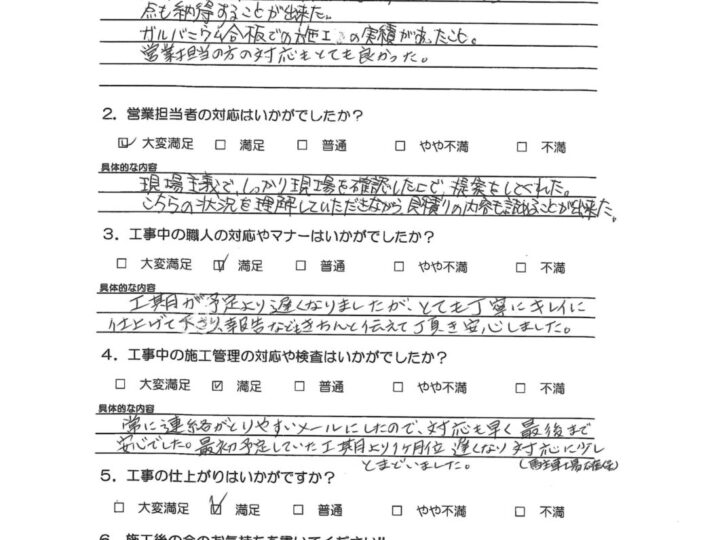 点も納得することが出来た。
ガルバニウム合板での施工の実績があったこと。
営業担当の方の対応もとても良かった。
2. 営業担当者の対応はいかがでしたか?
☑ 大変満足 □ 満足 □ 普通 □ やや不満 □ 不満
具体的な内容
現場主義で、しっかり現場を確認した上で、提案をしてくれた。
こちらの状況を理解していただきながら見積りの内容も詰めることが出来た。
3. 工事中の職人の対応やマナーはいかがでしたか?
□ 大変満足 ☑ 満足 □ 普通 □ やや不満 □ 不満
具体的な内容
工期が予定より遅くなりましたが、とても丁寧にキレイに
仕上げて下さり、報告などもきちんと伝えて頂き安心しました。
4. 工事中の施工管理の対応や検査はいかがでしたか?
□ 大変満足 ☑ 満足 □ 普通 □ やや不満 □ 不満
具体的な内容
常に連絡がとりやすいメールにしたので、対応も早く最後まで
安心でした。最初予定していた工期より1ヶ月位遅くなり対応に少し
とまどいました。
5. 工事の仕上がりはいかがですか?
□ 大変満足 ☑ 満足 □ 普通 □ やや不満 □ 不満
6. 施工後の今のお気持ちを書いてください!!